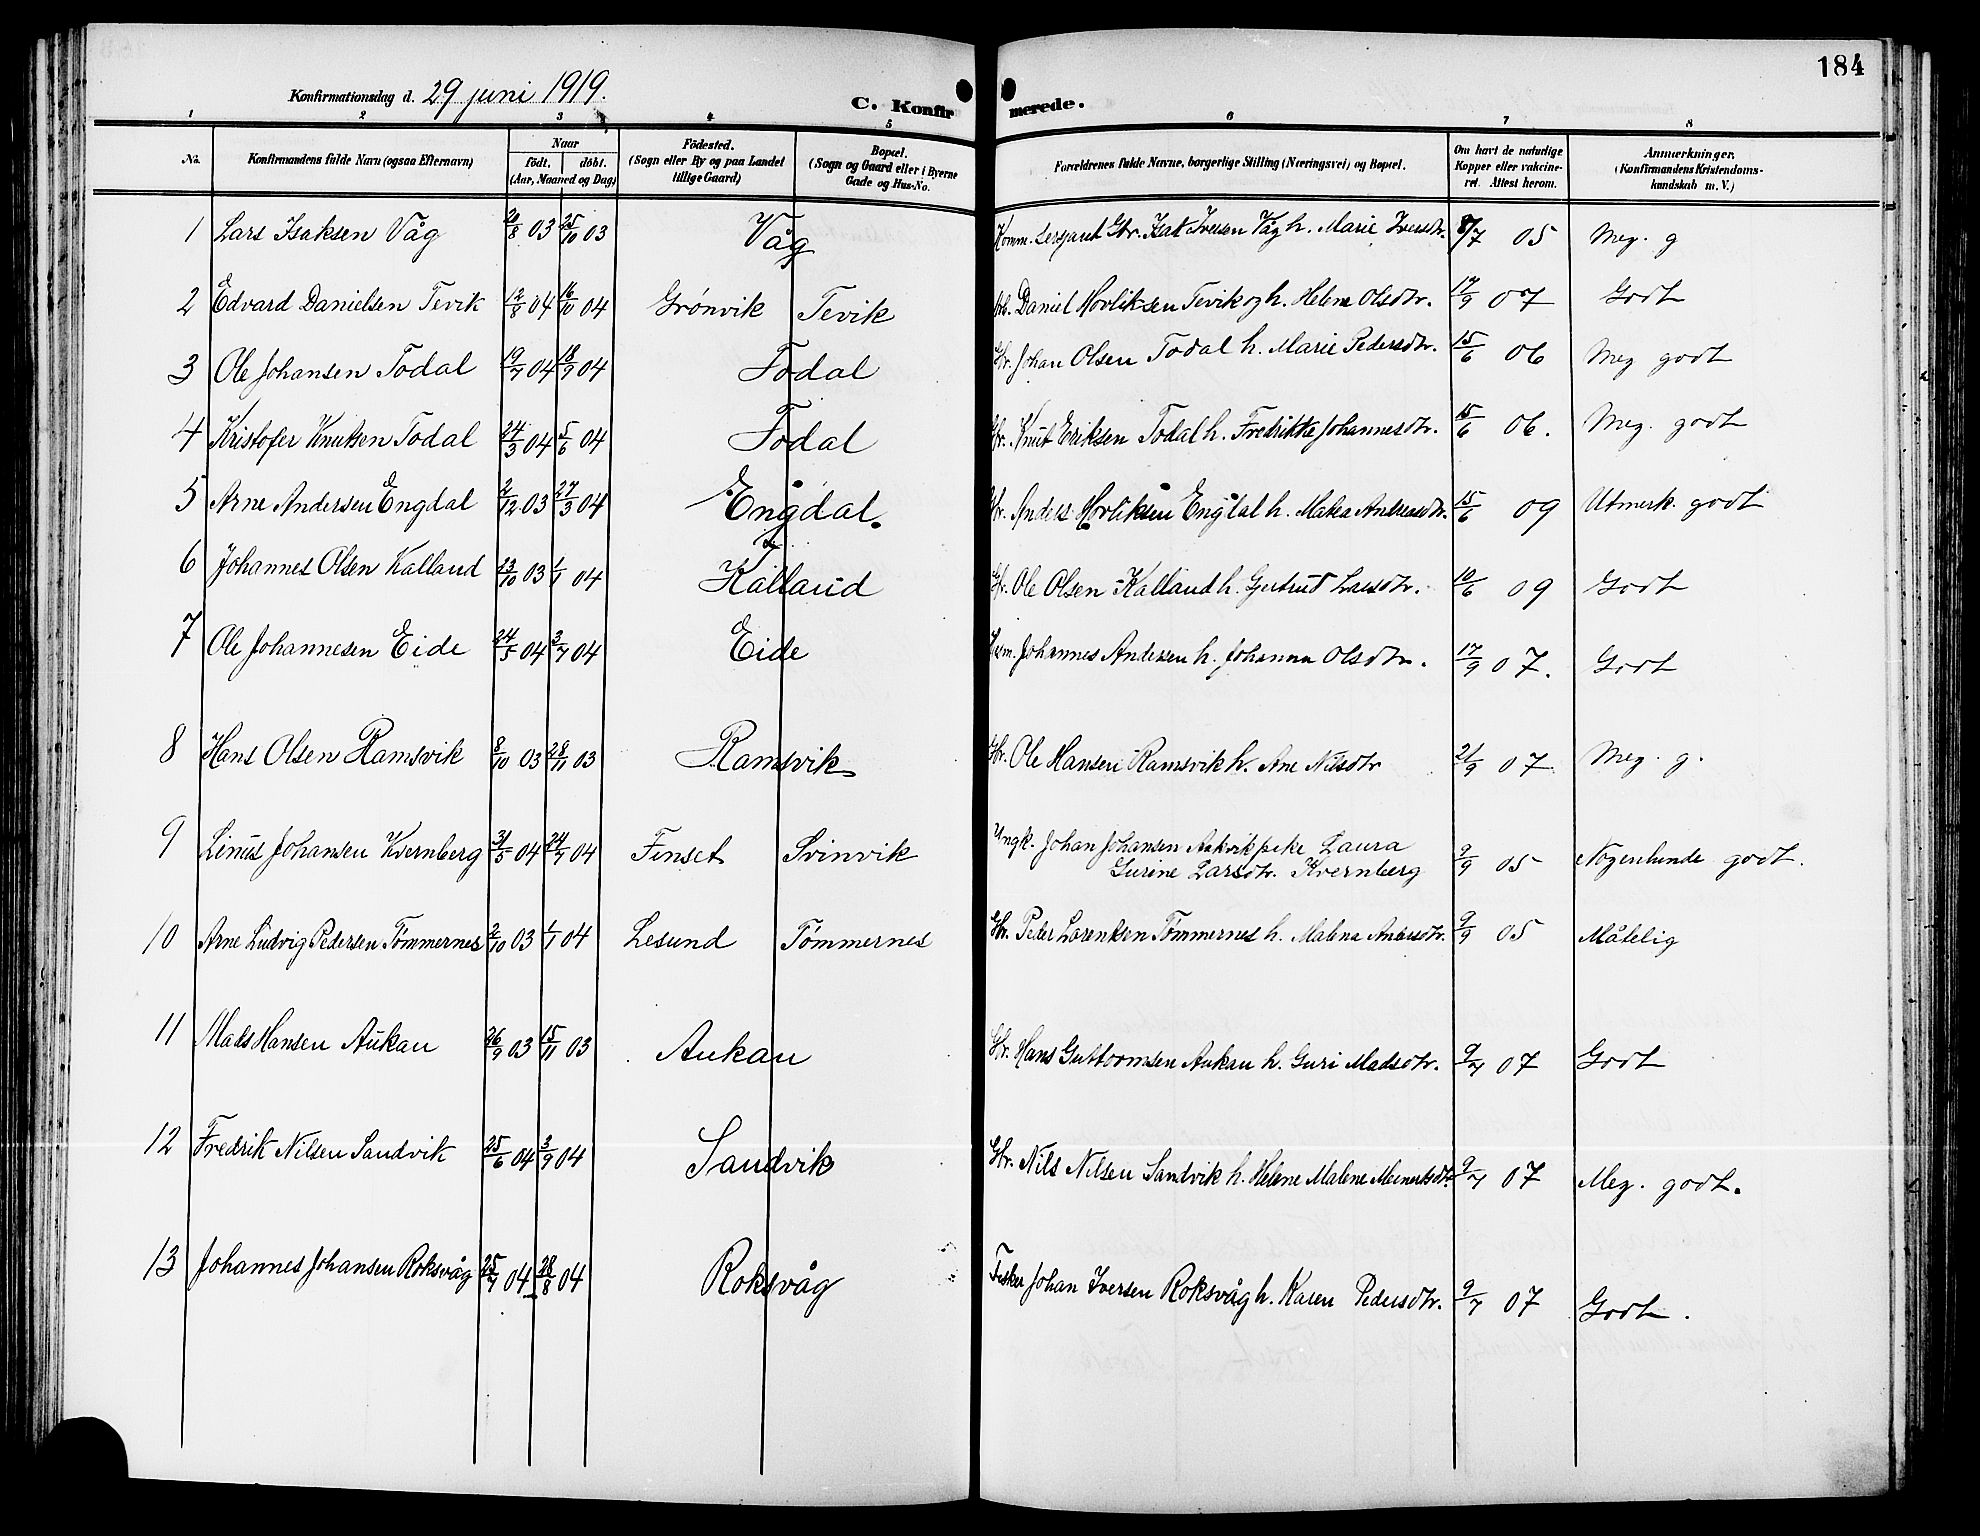 184
Konfirmationsdag d. 29 juni 1919.
C. Konfirmerede.
1 2 3 4 5 6 7 8
No. Konfirmandens fulde Navn (ogsaa Efternavn) Naar født, døbt. (Aar, Maaned og Dag) Fødested. (Sogn eller By og paa Landet tillige Gaard) Bopæl. (Sogn og Gaard eller i Byerne Gade og Hus-No. Forældrenes fulde Navne, borgerlige Stilling (Næringsvei) og Bopæl. Om havt de naturlige Kopper eller vakcineret. Attest herom. Anmerkninger. (Konfirmandens Kristendomskundskab m. V.)
1 Lars Isaksen Våg 20/8 03 25/10 03 Våg Komm. Sersjant Gbr. Isak Iversen Våg h. Marie Iversdtr. 8/7 05 Meg. g
2 Edvard Danielsen Tevik 12/8 04 16/10 04 Grønvik Tevik Daniel Hovliksen Tevik og h. Helene Olsdtr. 17/9 07 Godt
3 Ole Johansen Todal 19/7 04 18/9 04 Todal Gbr. Johan Olsen Todal h. Marie Pedersdtr. 15/6 06 Meg godt
4 Kristofer Knutsen Todal 24/3 04 5/6 04 Todal Gbr. Knut Eriksen Todal h. Fredrikke Johannesdtr. 15/6 06. Meg. godt
5 Arne Andersen Engdal 2/12 03 27/3 04 Engdal. Gbr. Anders Hovliksen Engdal h. Malea Andreasdtr. 15/6 09 Utmerk. godt
6 Johannes Olsen Kalland 23/10 03 1/1 04 Kalland Gbr. Ole Olsen Kalland h. Gjertrud Larsdtr. 10/6 09 Godt
7 Ole Johannesen Eide 24/5 04 3/7 04 Eide Husm. Johannes Andersen h. Johanna Olsdtr. 17/9 07. Godt
8 Hans Olsen Ramsvik 8/10 03 28/11 03 Ramsvik Gbr. Ole Hansen Ramsvik h. Ane Nilsdtr 21/9 07 Meg. g.
9 Linus Johansen Kvernberg 31/5 04 24/7 04 Finset Svinvik Ungk. Johan Johansen Aakvik pike Laura
Gurine Larsdtr. Kvernberg 9/9 05 Nogenlunde godt.
10 Arne Ludvig Pedersen Tømmernes 2/10 03 1/1 04 Lesund Tømmernes Gbr. Peter Lorentsen Tømmernes h. Malena Andersdtr. 9/9 05 Måtelig
11 Mads Hansen Aukan 26/9 03 15/11 03 Aukan Gbr. Hans Guttormsen Aukan h. Guri Madsdtr. 9/7 07 Godt
12 Fredrik Nilsen Sandvik 25/6 04 3/9 04 Sandvik Gbr. Nils Nilsen Sandvik h. Helene Malene Meinertsdtr. 9/7 07 Meg. godt.
13 Johannes Johansen Roksvåg 25/7 04 28/8 04 Roksvåg Fisker Johan Iversen Roksvåg h. Karen Pedersdtr. 9/7 07 Godt.